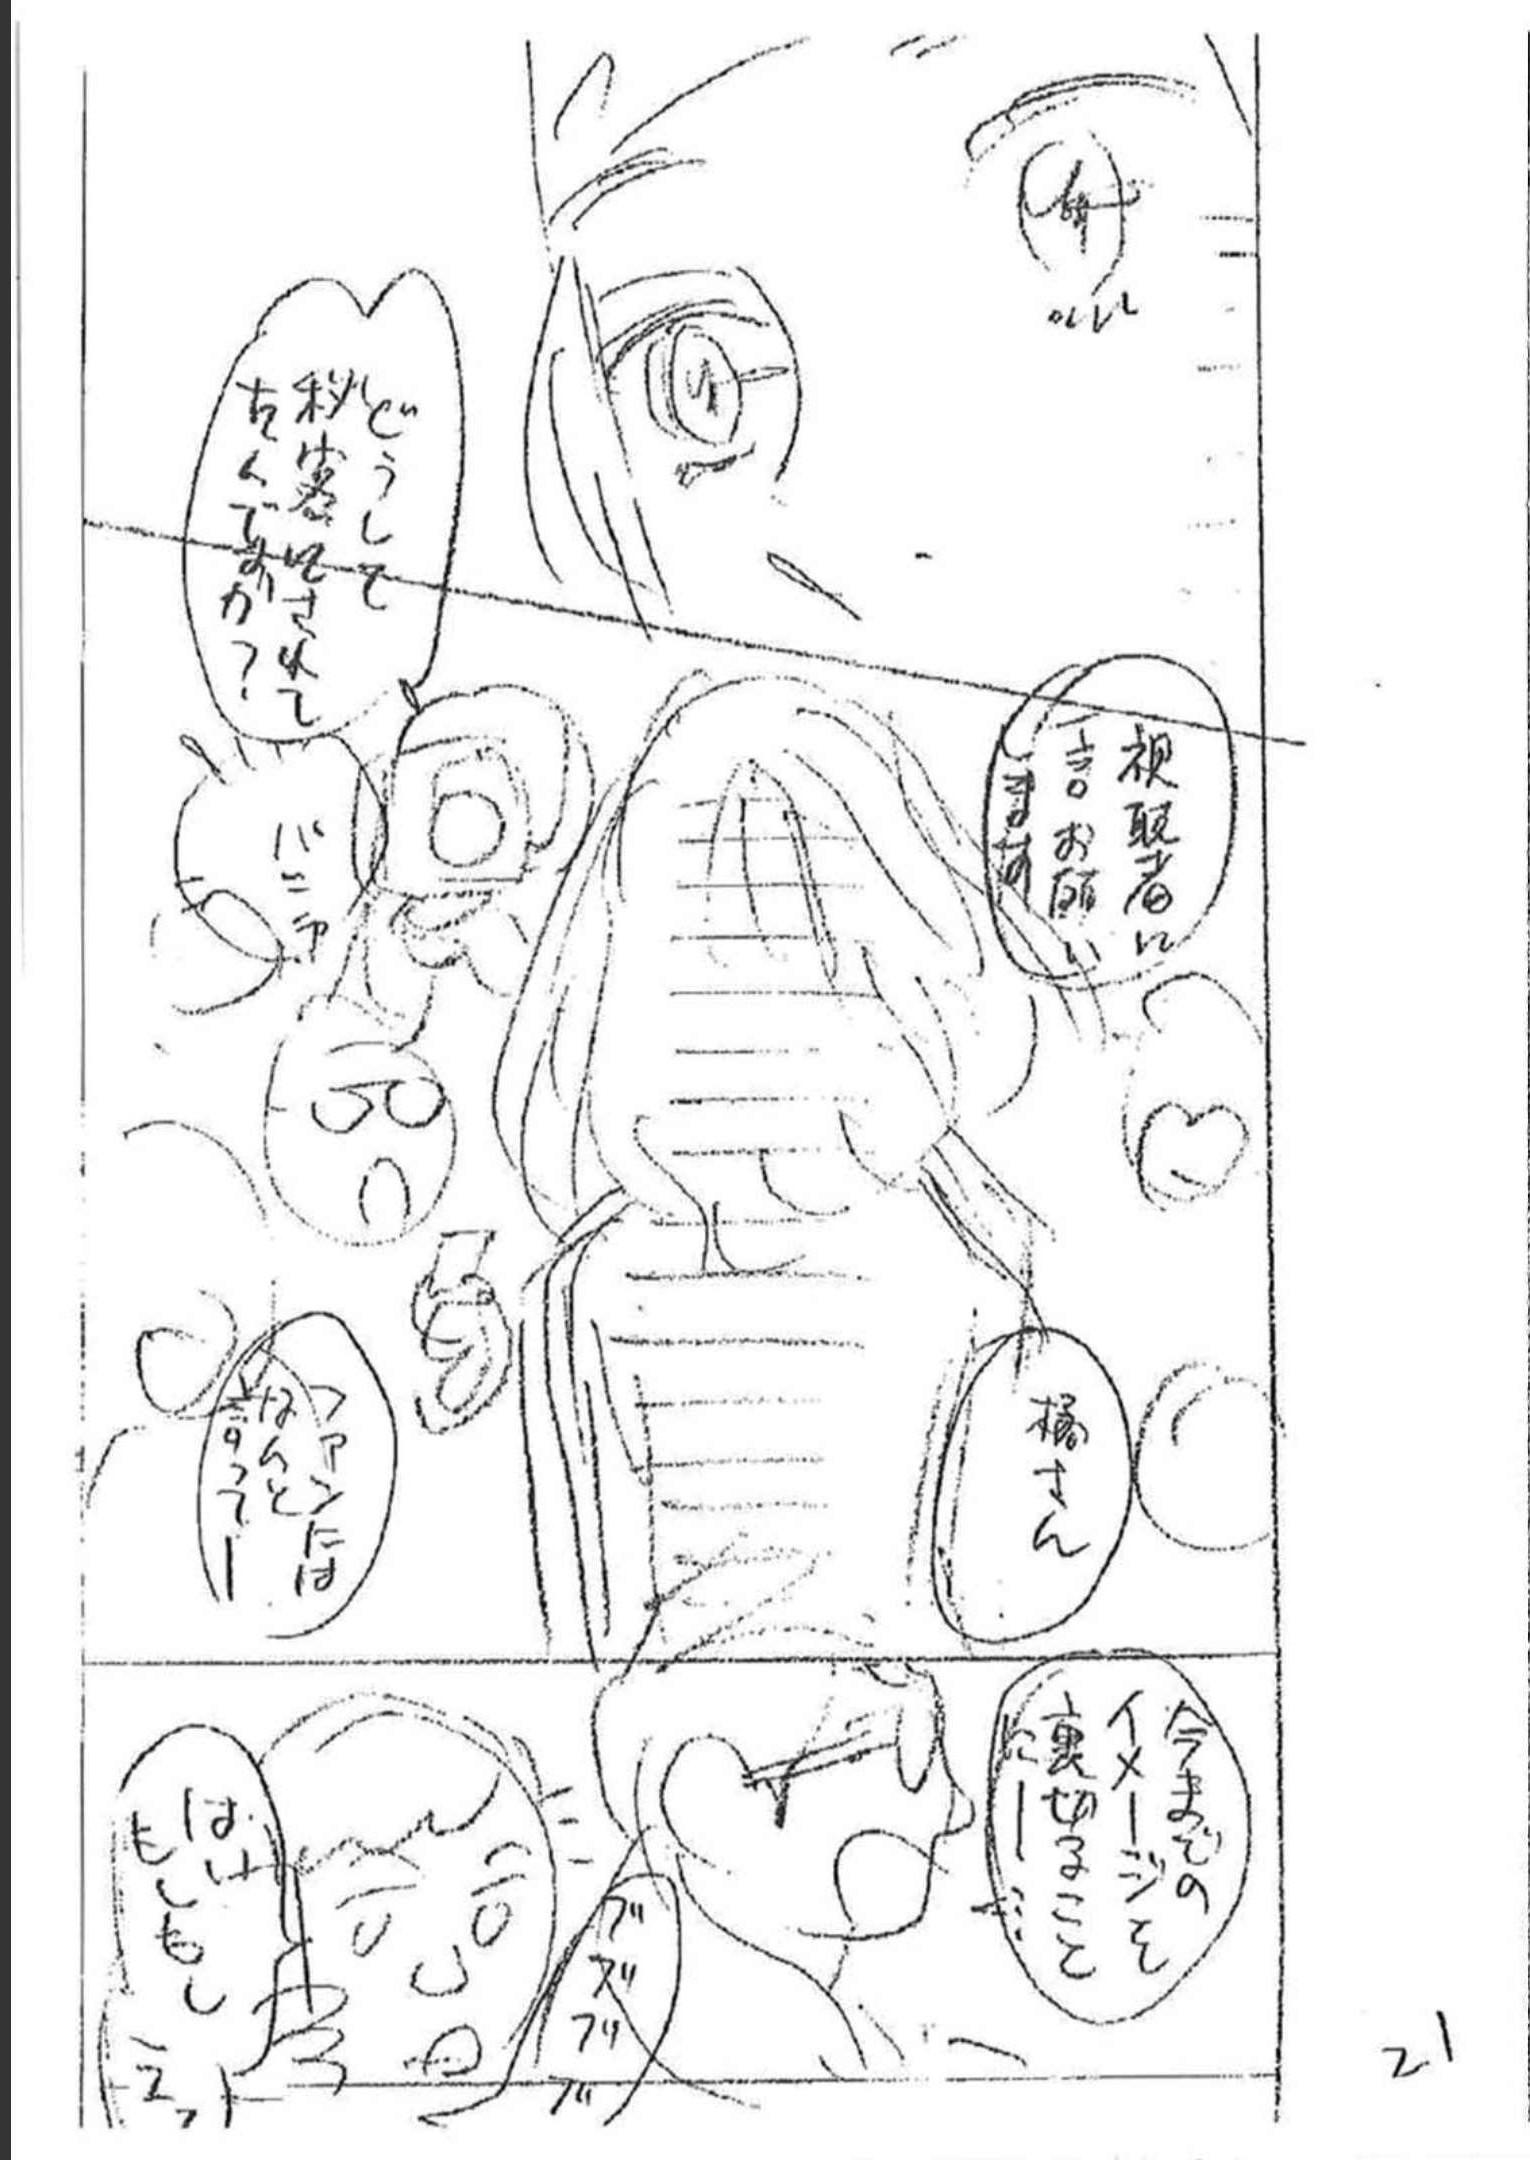 どうして
秘密にされて
たんですか?
視聴者に
一言お願い
します
バニラ
橘さん
ファンには
なんと
言って―
今までの
イメージを
裏切ること
に―
ブブブブ
はい
もしもし